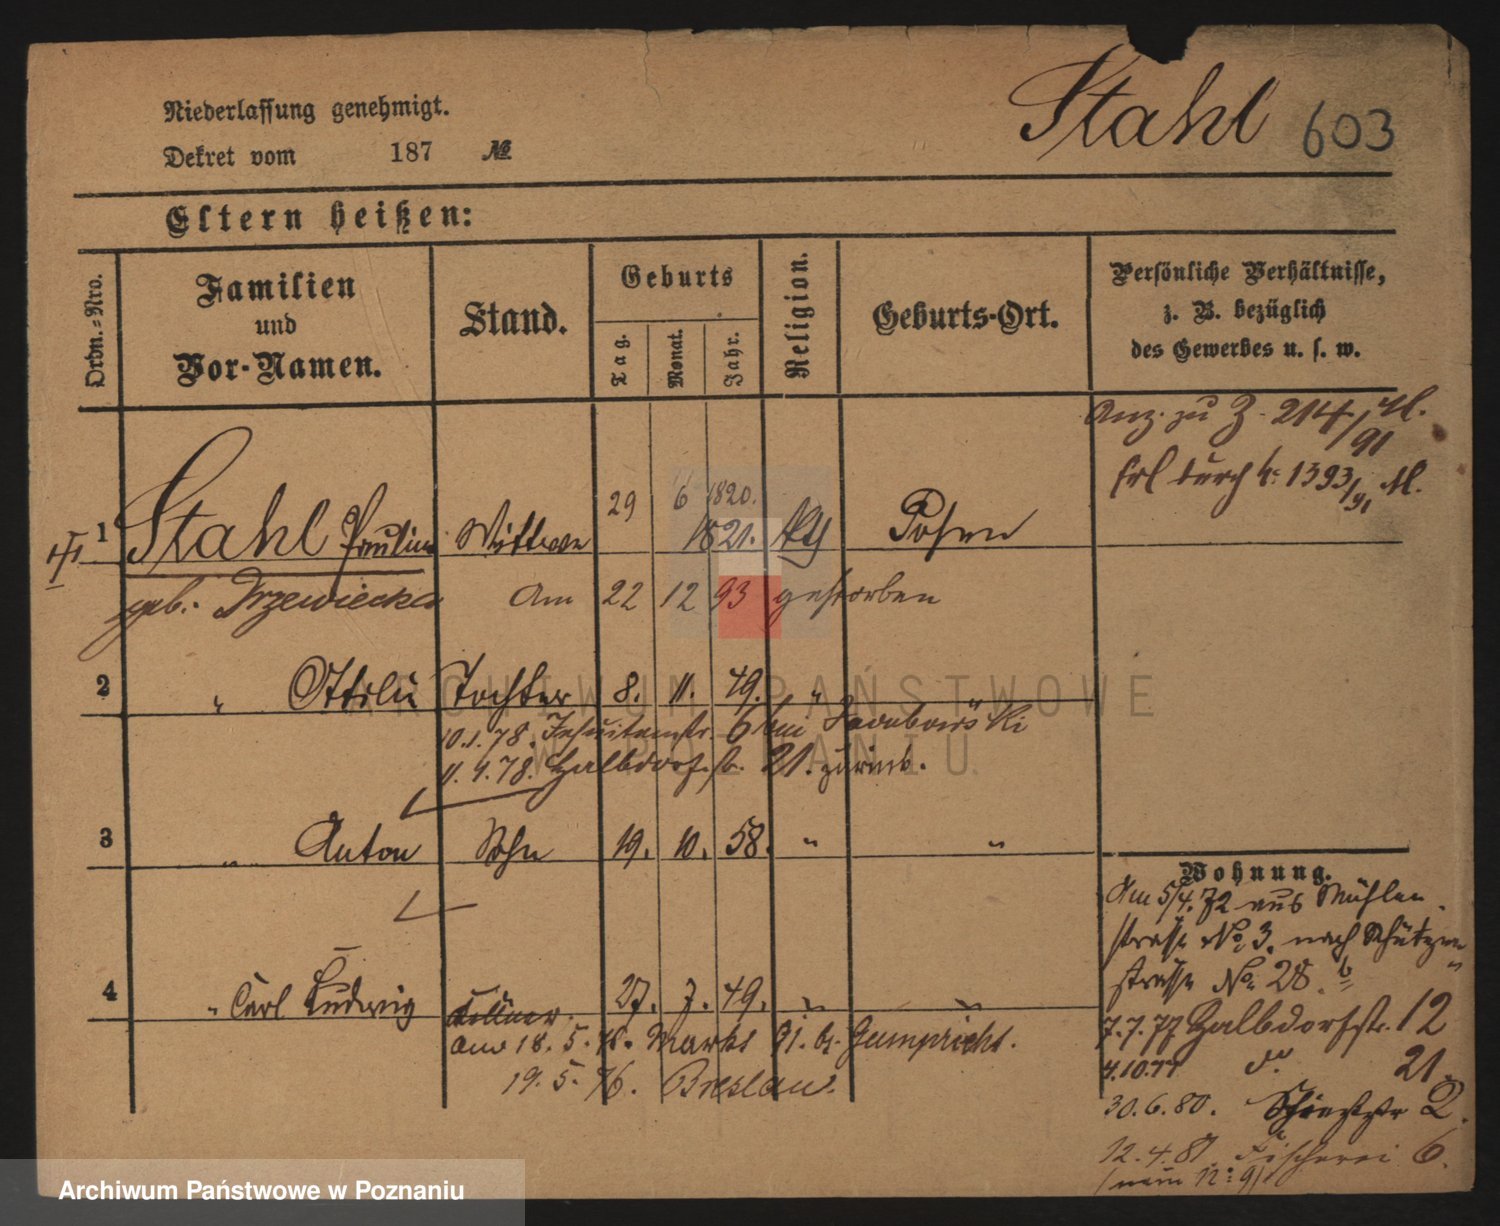 Stahl 603
Niederlassung genehmigt.
Dekret vom 187 №
Eltern heißen:
Ordn.=Nro.
Familien und Vor-Namen.
Stand.
Geburts
Tag.
Monat.
Jahr.
Religion.
Geburts-Ort.
Persönliche Verhältnisse,
z. B. bezüglich
des Gewerbes u. s. w.
Anz. zu 214/91
Erl durch 1393/91 M.
29 6 1820.
1 Stahl Pauline Wittwe 1821. Posen
geb. Drzewiecka Am 22 12 93 gestorben
2 " Ottilie Tochter 8. 11. 49. "
10.1.78. Jesuitenstr. 6 bei
11.4.78. Halbdorfstr. 21. zurück.
3 " Anton Sohn 19. 10. 58. " "
4 " Carl Ludwig Kellner. 27. 7. 49. " "
am 18. 5. 76. Markt 91. b. Gumpricht.
19. 5. 76. Breslau.
Wohnung.
Am 5/4. 72 aus Mühlen-
strasse No. 3. nach Schützen-
strasse No. 28.b
7.7.77 Halbdorfstr. 12
4.10.77 do. 21.
30.6.80. 2.
12.4.87. Fischerei 6.
ARCHIWUM PAŃSTWOWE
W POZNANIU
Archiwum Państwowe w Poznaniu